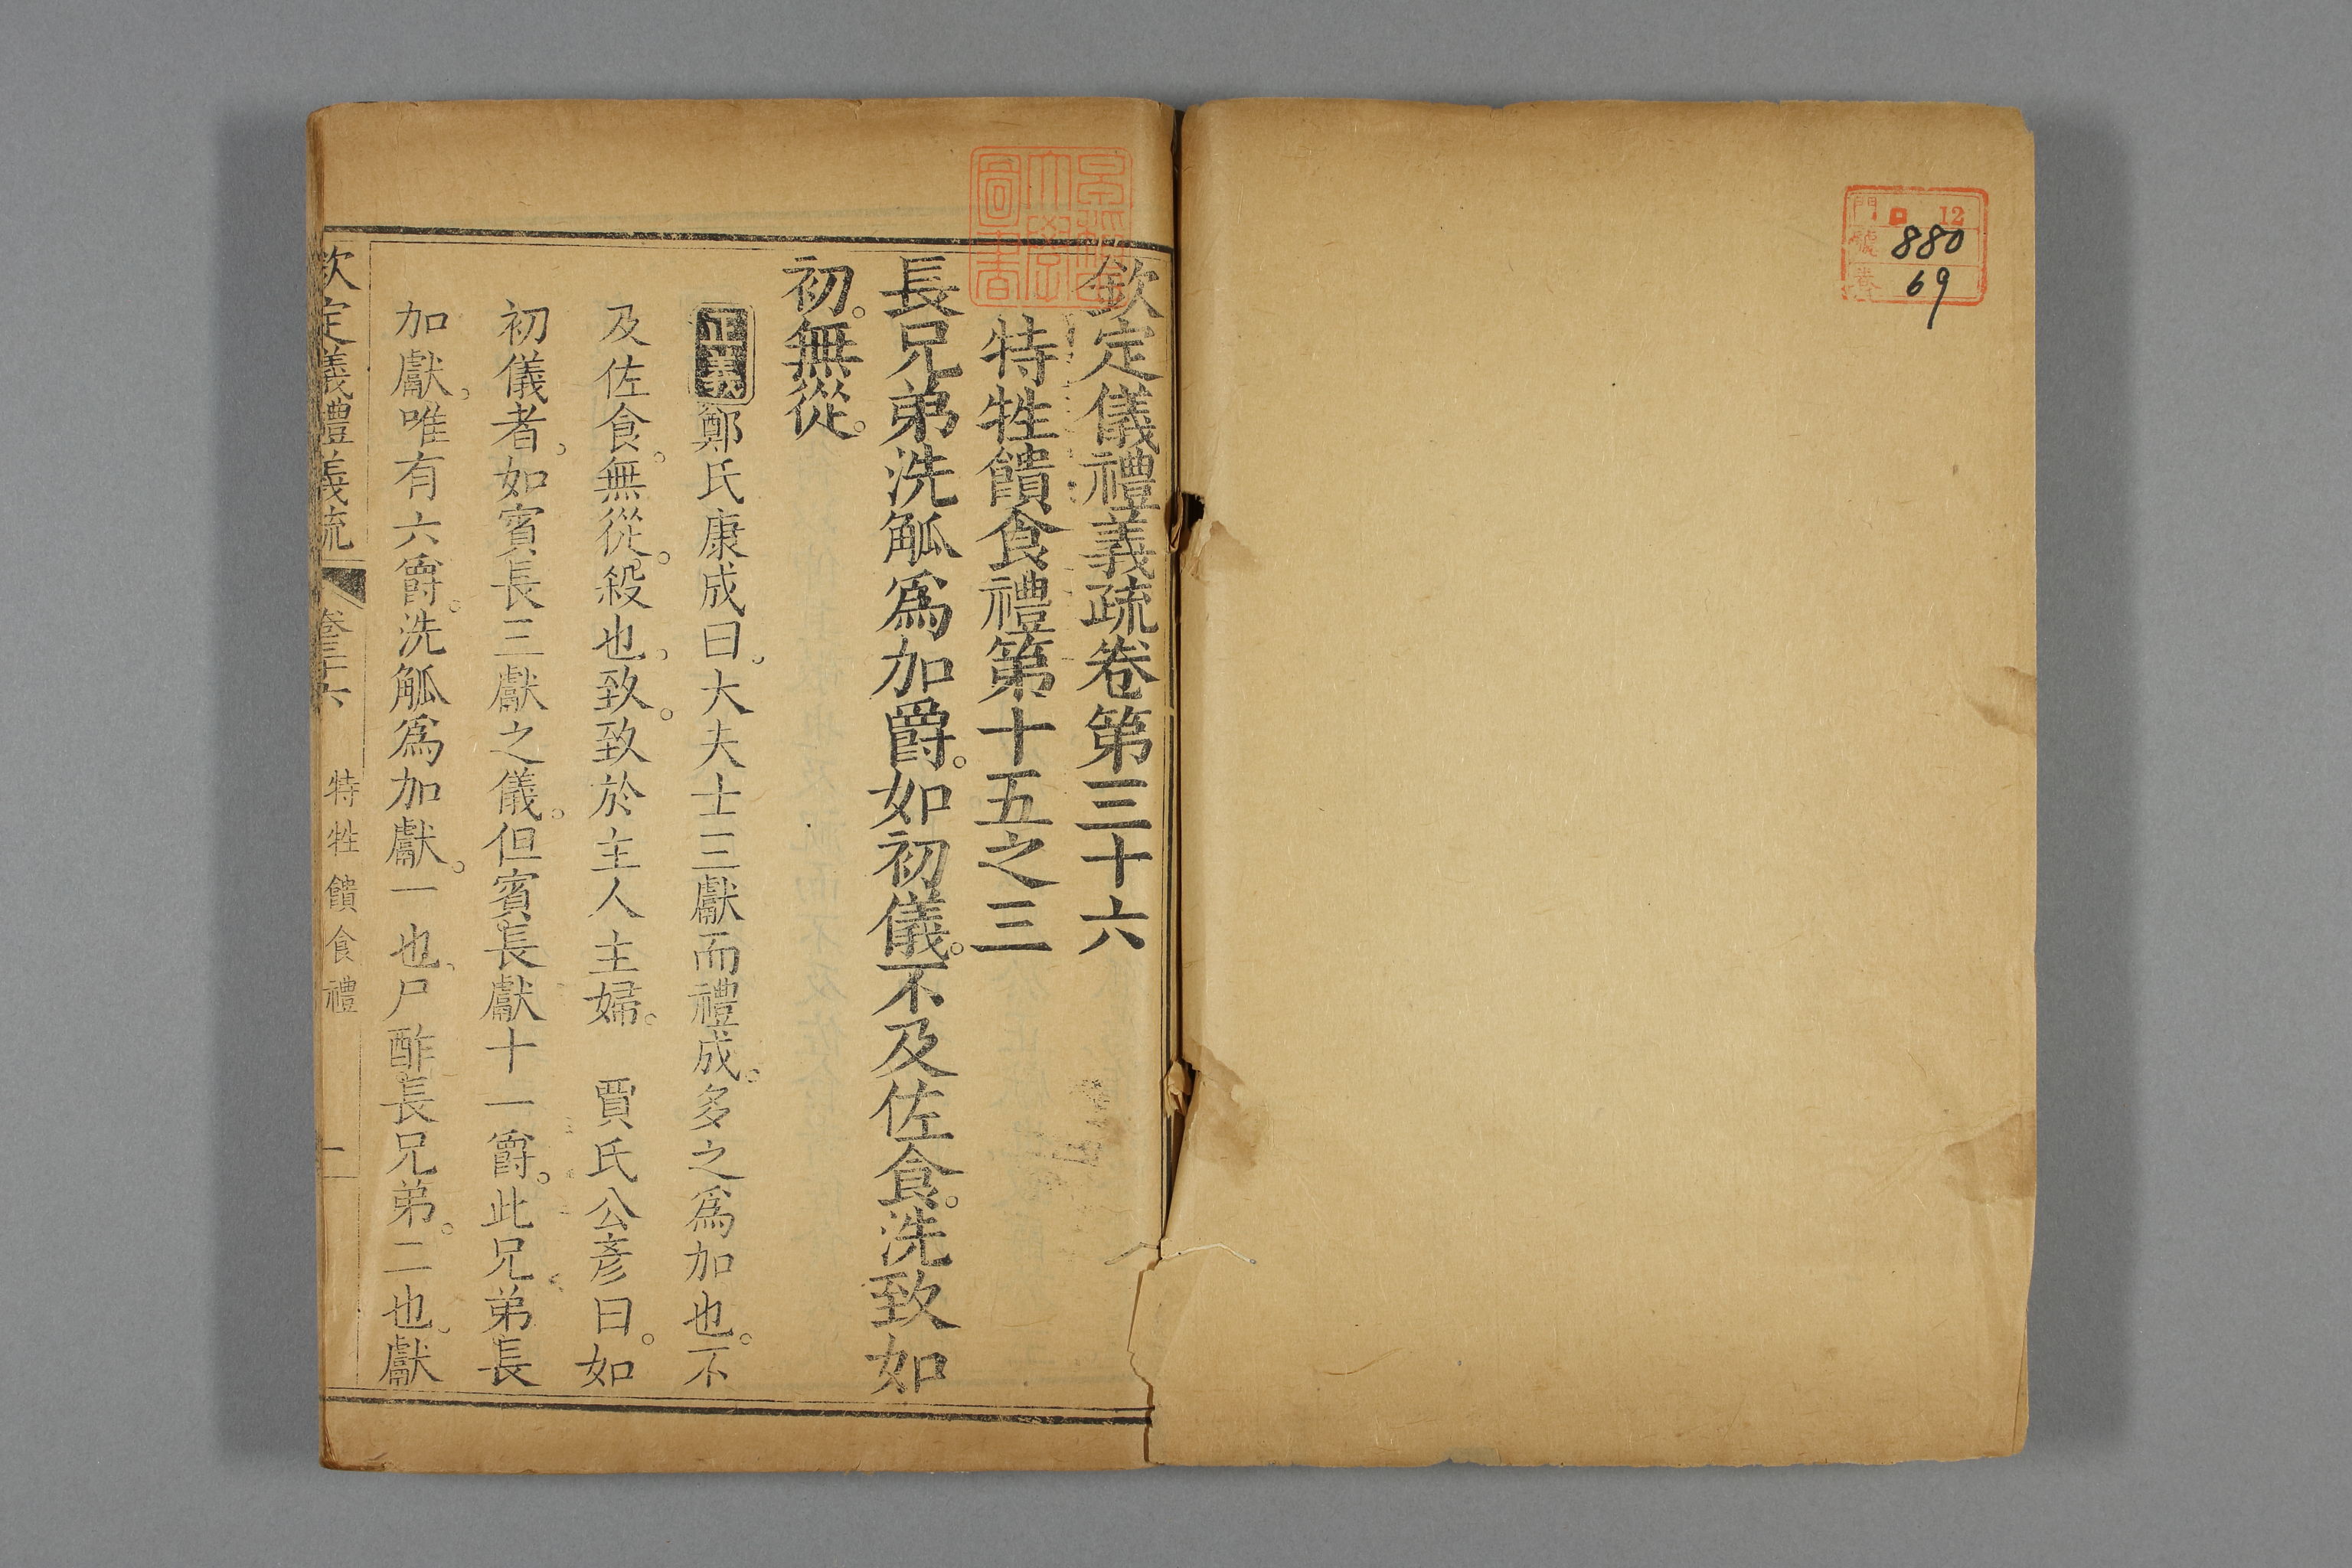 門 12
號 880
巻 69
欽定儀禮義疏卷第三十六
特牲饋食禮第十五之三
長兄弟洗觚爲加爵。如初儀。不及佐食。洗致如
初。無從。
正義鄭氏康成曰。大夫士三獻而禮成。多之爲加也。不
及佐食。無從。殺也。致。致於主人主婦。 賈氏公彥曰。如
初儀者。如賓長三獻之儀。但賓長獻十一爵。此兄弟長
加獻。唯有六爵。洗觚爲加獻。一也。尸酢長兄弟。二也。獻
欽定儀禮義疏 卷三十六 特牲饋食禮 一